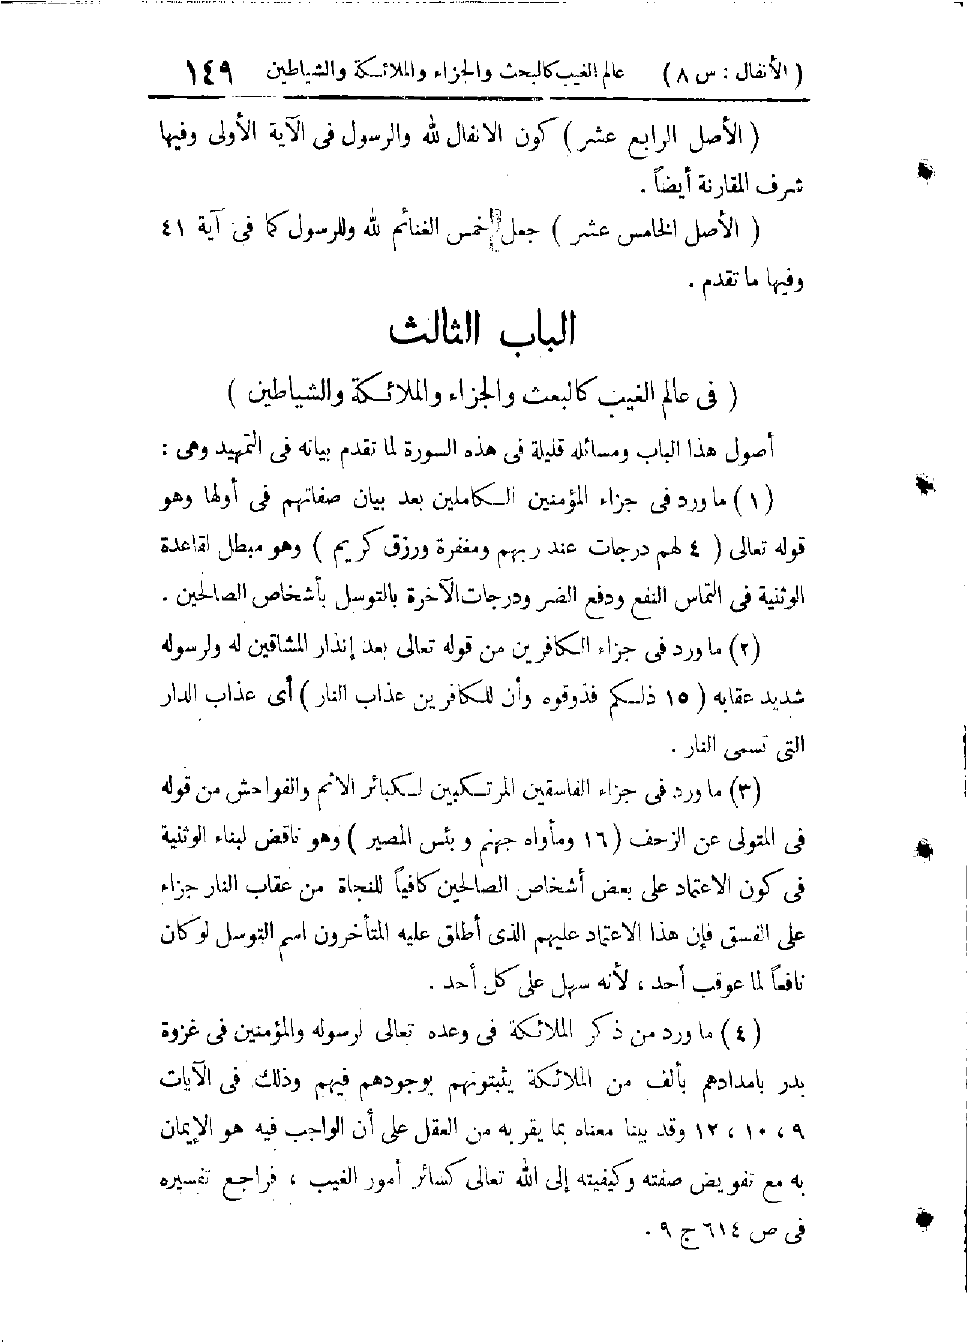 ( الأنفال : س ٨ ) عالم الغيب كالبحث والجزاء والملائكة والشياطين ١٤٩
( الأصل الرابع عشر ) كون الانفال لله والرسول فى الآية الأولى وفيها
شرف المقارنة أيضاً .
( الأصل الخامس عشر ) جعل خمس الغنائم لله وللرسول كما فى آية ٤١
وفيها ما تقدم .
الباب الثالث
( فى عالم الغيب كالبعث والجزاء والملائكة والشياطين )
أصول هذا الباب ومسائله قليلة فى هذه السورة لما تقدم بيانه فى التمهيد وهى :
(١) ما ورد فى جزاء المؤمنين الكاملين بعد بيان صفاتهم فى أولها وهو
قوله تعالى ( ٤ لهم درجات عند ربهم ومغفرة ورزق كريم ) وهو مبطل لقاعدة
الوثنية فى التماس النفع ودفع الضر ودرجات الآخرة بالتوسل بأشخاص الصالحين .
(٢) ما ورد فى جزاء الكافرين من قوله تعالى بعد إنذار المشاقين له ولرسوله
شديد عقابه ( ١٥ ذلكم فذوقوه وأن للكافرين عذاب النار ) أى عذاب الدار
التى تسمى النار .
(٣) ما ورد فى جزاء الفاسقين المرتكبين لكبائر الاثم والفواحش من قوله
فى المتولى عن الزحف ( ١٦ ومأواه جهنم وبئس المصير ) وهو ناقض لبناء الوثنية
فى كون الاعتماد على بعض أشخاص الصالحين كافياً للنجاة من عقاب النار جزاء
على الفسق فإن هذا الاعتماد عليهم الذى أطلق عليه المتأخرون اسم التوسل لو كان
نافعاً لما عوقب أحد ، لأنه سهل على كل أحد .
(٤) ما ورد من ذكر الملائكة فى وعده تعالى لرسوله والمؤمنين فى غزوة
بدر بامدادهم بألف من الملائكة يثبتونهم بوجودهم فيهم وذلك فى الآيات
٩ ، ١٠ ، ١٢ وقد بينا معناه بما يقربه من العقل على أن الواجب فيه هو الإيمان
به مع تفويض صفته وكيفيته إلى الله تعالى كسائر أمور الغيب ، فراجع تفسيره
فى ص ٦١٤ ج ٩ .